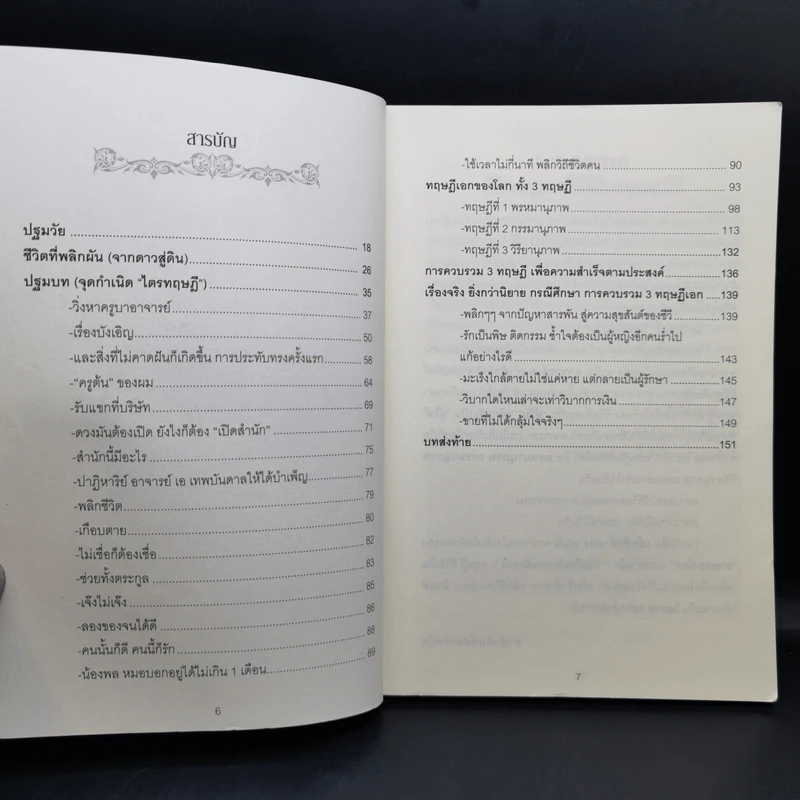 สารบัญ
ปฐมวัย 18
ชีวิตที่พลิกผัน (จากดาวสู่ดิน) 26
ปฐมบท (จุดกำเนิด “ไตรทฤษฎี”) 35
-วิ่งหาครูบาอาจารย์ 37
-เรื่องบังเอิญ 50
-และสิ่งที่ไม่คาดฝันก็เกิดขึ้น การประทับทรงครั้งแรก 58
-“ครูต้น” ของผม 64
-รับแขกที่บริษัท 69
-ดวงมันต้องเปิด ยังไงก็ต้อง “เปิดสำนัก” 71
-สำนักนี้มีอะไร 75
-ปาฏิหาริย์ อาจารย์ เอ เทพบันดาลให้ได้บำเพ็ญ 77
-พลิกชีวิต 79
-เกือบตาย 80
-ไม่เชื่อก็ต้องเชื่อ 82
-ช่วยทั้งตระกูล 83
-เจ๊งไม่เจ๊ง 85
-ลองของจนได้ดี 86
-คนนั้นก็ดี คนนี้ก็รัก 88
-น้องพล หมอบอกอยู่ได้ไม่เกิน 1 เดือน 89
6
-ใช้เวลาไม่กี่นาที พลิกวิถีชีวิตคน 90
ทฤษฎีเอกของโลก ทั้ง 3 ทฤษฎี 93
-ทฤษฎีที่ 1 พรหมานุภาพ 98
-ทฤษฎีที่ 2 กรรมานุภาพ 113
-ทฤษฎีที่ 3 วิริยานุภาพ 132
การควบรวม 3 ทฤษฎี เพื่อความสำเร็จตามประสงค์ 136
เรื่องจริง ยิ่งกว่านิยาย กรณีศึกษา การควบรวม 3 ทฤษฎีเอก 139
-พลิกๆๆ จากปัญหาสารพัน สู่ความสุขสันต์ของชีวี 139
-รักเป็นพิษ ติดกรรม ช้ำใจต้องเป็นผู้หญิงอีกคนร่ำไป
แก้อย่างไรดี 143
-มะเร็งใกล้ตายไม่ใช่แค่หาย แต่กลายเป็นผู้รักษา 145
-วิบากใดไหนเล่าจะเท่าวิบากการเงิน 147
-ชายที่ไม่ได้กลุ้มใจจริงๆ 149
บทส่งท้าย 151
7